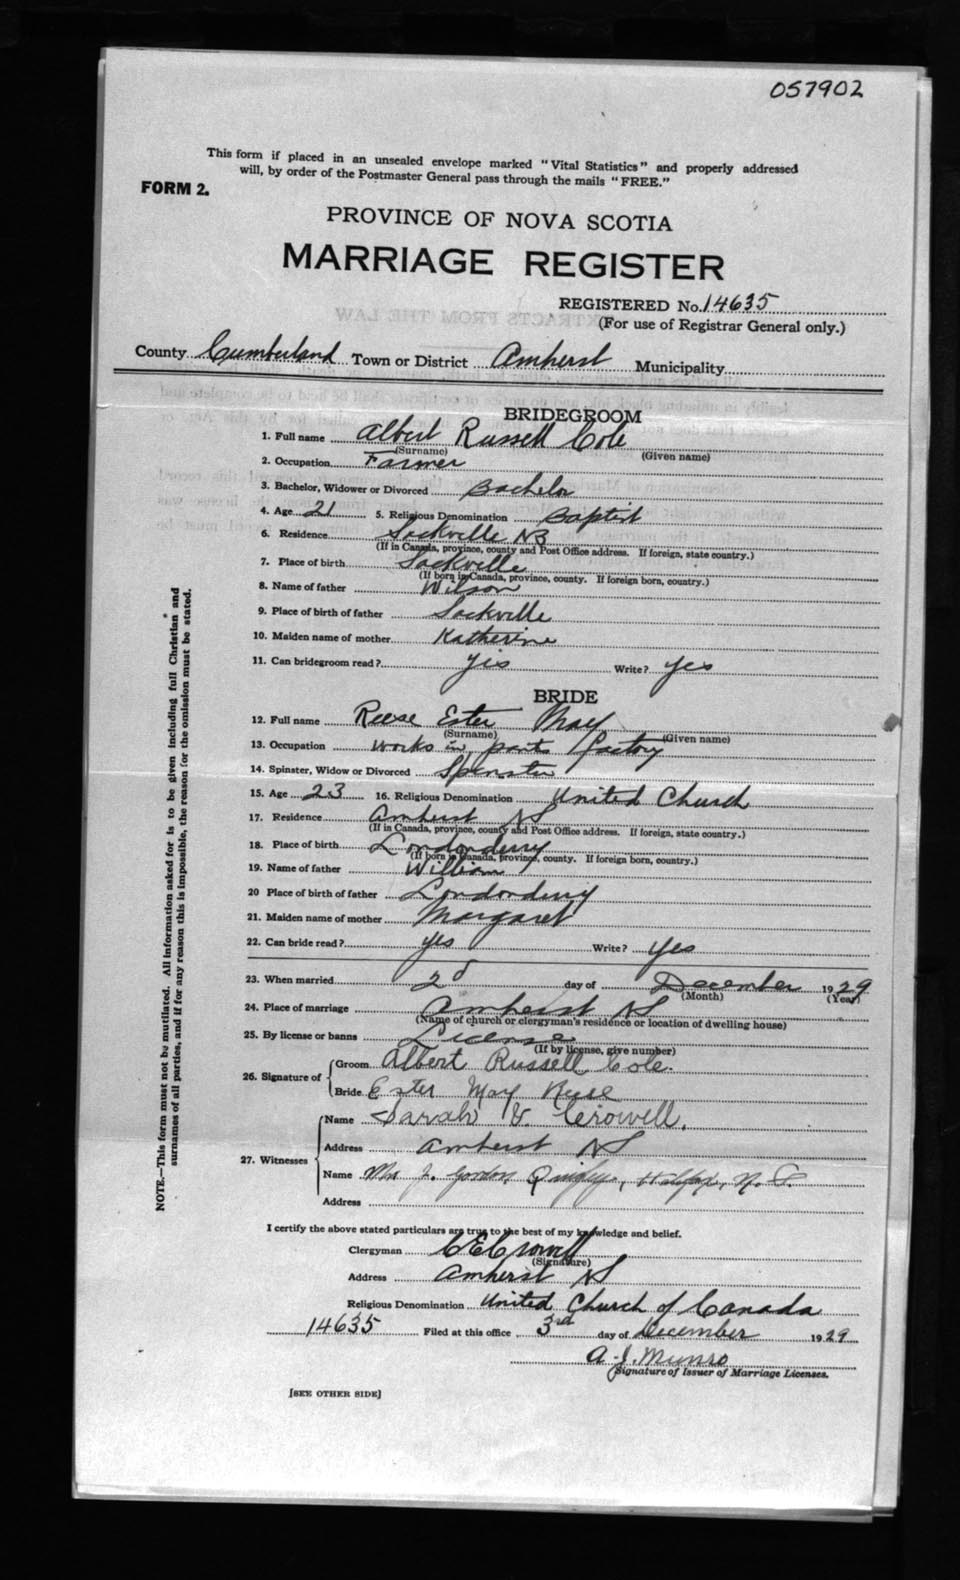 057902
This form if placed in an unsealed envelope marked "Vital Statistics" and properly addressed
will, by order of the Postmaster General pass through the mails "FREE."
FORM 2.
PROVINCE OF NOVA SCOTIA
MARRIAGE REGISTER
REGISTERED No. 14635
(For use of Registrar General only.)
County Cumberland Town or District Amherst Municipality
BRIDEGROOM
1. Full name Albert Russell Cole
(Surname) (Given name)
2. Occupation Farmer
3. Bachelor, Widower or Divorced Bachelor
4. Age 21 5. Religious Denomination Baptist
6. Residence Sackville NB
(If in Canada, province, county and Post Office address. If foreign, state country.)
7. Place of birth Sackville
(If born in Canada, province, county. If foreign born, country.)
8. Name of father Wilson
9. Place of birth of father Sackville
10. Maiden name of mother Katherine
11. Can bridegroom read? yis Write? yes
BRIDE
12. Full name Reese Ester May
(Surname) (Given name)
13. Occupation works in pants factory
14. Spinster, Widow or Divorced Spinster
15. Age 23 16. Religious Denomination United Church
17. Residence Amherst NS
(If in Canada, province, county and Post Office address. If foreign, state country.)
18. Place of birth Londonderry
(If born in Canada, province, county. If foreign born, country.)
19. Name of father William
20 Place of birth of father Londonderry
21. Maiden name of mother Margaret
22. Can bride read? yes Write? yes
23. When married 2d day of December 1929
(Month) (Year)
24. Place of marriage Amherst NS
(Name of church or clergyman's residence or location of dwelling house)
25. By license or banns License
(If by license, give number)
26. Signature of Groom Albert Russell Cole.
Bride Ester May Reese
27. Witnesses Name Sarah V. Crowell.
Address Amherst NS
Name Mrs J. Gordon Quigley, Halifax, N.S.
Address
I certify the above stated particulars are true to the best of my knowledge and belief.
Clergyman C E Crowell
(Signature)
Address Amherst NS
Religious Denomination United Church of Canada
14635 Filed at this office 3rd day of December 1929
A. J. Munro
Signature of Issuer of Marriage Licenses.
[SEE OTHER SIDE]
NOTE.—This form must not be mutilated. All information asked for is to be given including full Christian and
surnames of all parties, and if for any reason this is impossible, the reason for the omission must be stated.